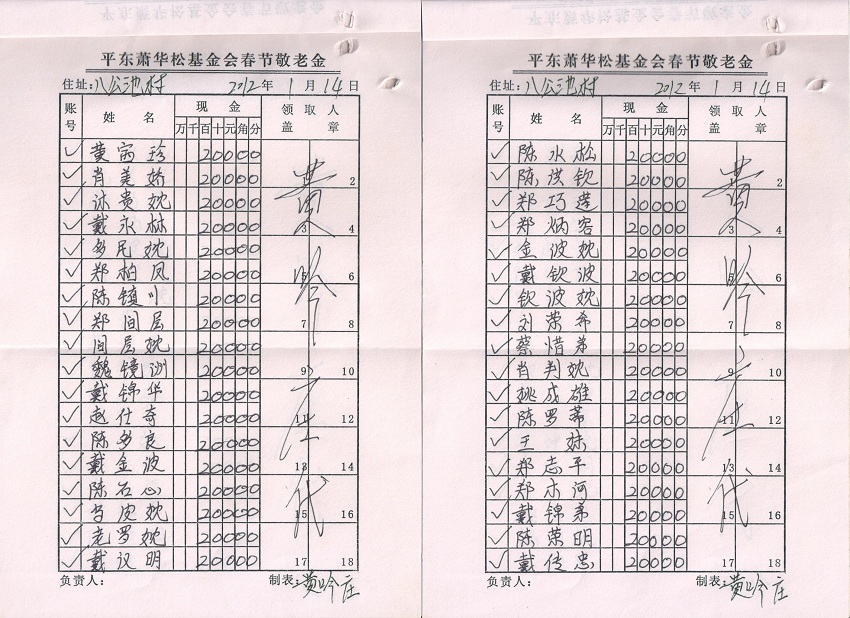 平东萧华松基金会春节敬老金
住址：八公池村 2012年1月14日
账号 姓名 现金 领取人盖章
万千百十元角分
黄 珍 20000
肖美娇 20000 2
沐贵妣 20000
戴永林 20000 3 4
乡民妣 20000
郑柏凤 20000 5 6
陈镇 20000
郑间层 20000 7 8
间层妣 20000
魏镜洲 20000 9 10
戴锦华 20000
赵仕奇 20000 11 12
陈乡良 20000
戴金波 20000 13 14
陈石心 20000
乌皮妣 20000 15 16
老罗妣 20000
戴汉明 20000 17 18
黄 代
负责人： 制表：黄 庄
平东萧华松基金会春节敬老金
住址：八公池村 2012年1月14日
账号 姓名 现金 领取人盖章
万千百十元角分
陈水松 20000
陈洪钦 20000 2
郑巧莲 20000
郑炳容 20000 3 4
金波妣 20000
戴钦波 20000 5 6
钦波妣 20000
刘荣希 20000 7 8
蔡惜弟 20000
肖判妣 20000 9 10
姚成雄 20000
陈罗蒂 20000 11 12
王妹 20000
郑志平 20000 13 14
郑木河 20000
戴锦弟 20000 15 16
陈荣明 20000
戴传忠 20000 17 18
黄 代
负责人： 制表：黄 庄